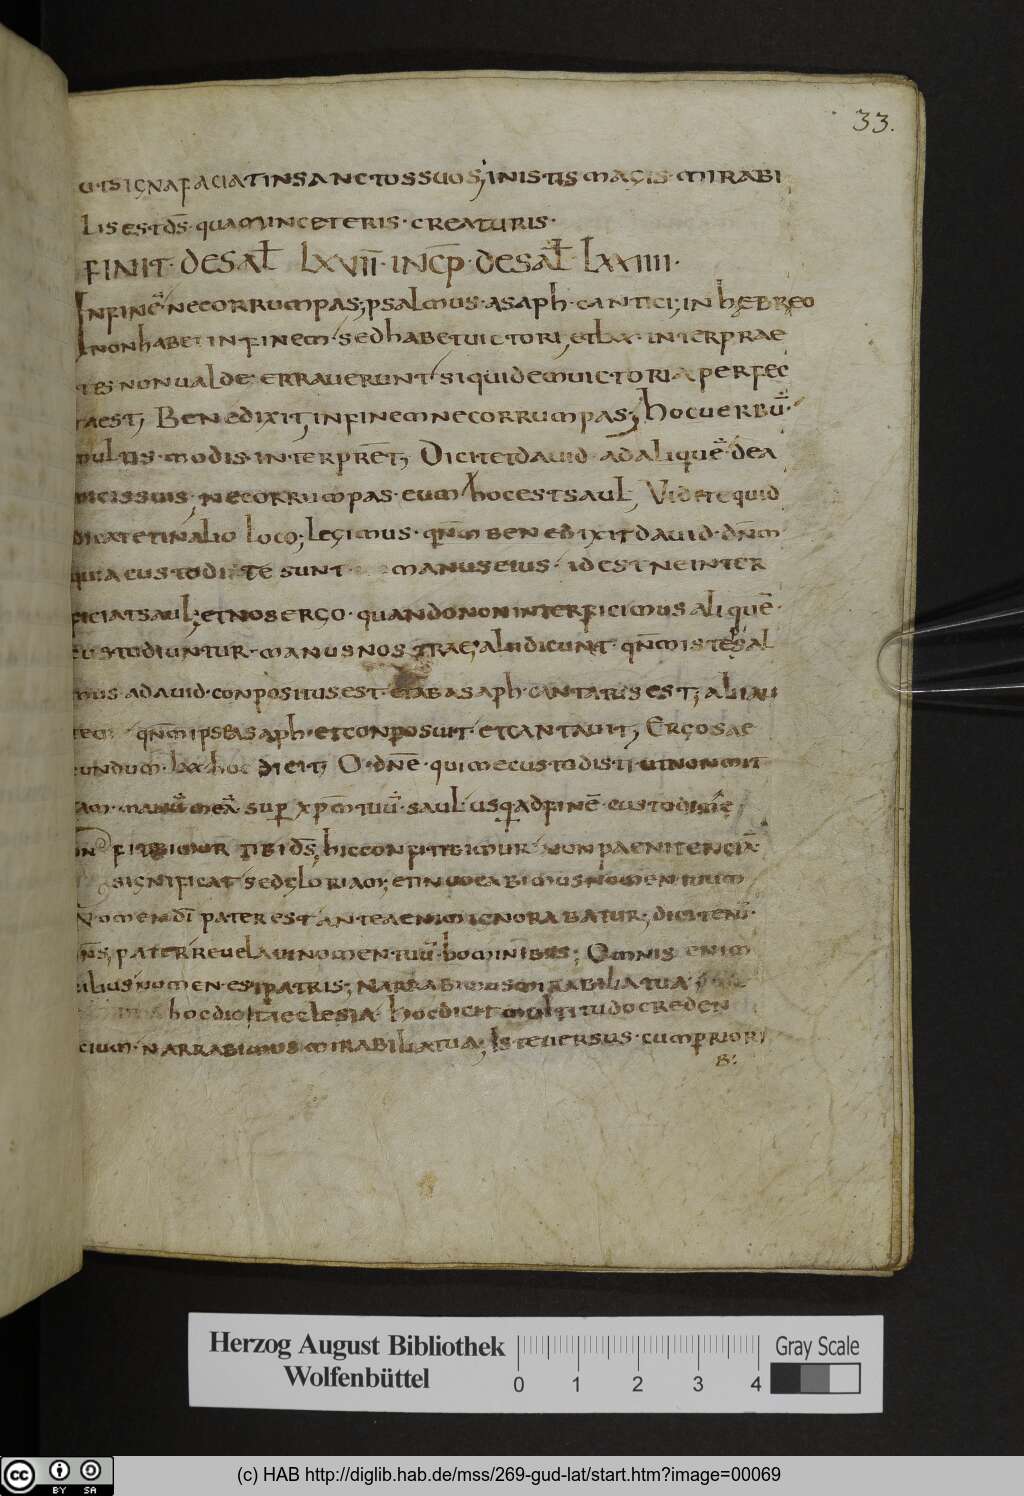 33.
ut signa faciat in sanctos suos; in istis magis mirabi
lis est ds̄ quam in ceteris creaturis.
FINIT DE SAL̄ LXVII INCP̄ DE SAL̄ LXXIIII.
In finē ne corrumpas; psalmus asaph cantici; in hebreo
non habet in finem sed habet uictori, et lxx interprae
tes non ualde errauerunt siquidem uictoria perfec
ta est; Benedixit; in finem ne corrumpas; hoc uerbū
multis modis interpret̄; Dicit et dauid ad aliquē de a
micis suis, ne corrumpas eum hoc est saul, Videte quid
dicat et in alio loco; legimus qn̄m benedixit dauid dn̄m
quia custodite sunt manus eius id est ne inter
ficiat saul; et nos ergo quando non interficimus aliquē
custodiuntur manus nostrae; alii dicunt qn̄m iste psal
mus a dauid conpositus est et ab asaph cantatus est; alii au
tem qn̄m ipse asaph et conposuit et cantauit, Ergo sae
cundum lxx hoc dicit; O dn̄e qui me custodisti ut non mit
tam manū meā sup xp̄m tuū saul usq; ad finē custodi me
Confitebimur tibi ds̄, hic confitebimur non paenitenciā
significat sed gloriam; et inuocabimus nomen tuum
Nomen dī pater est antea enim ignorabatur; dicit enī
dn̄s, pater reuelaui nomen tuū hominibus; Omnis enim
filius nomen est patris; Narrabimus mirabilia tua
hoc dicit ecclesia hoc dicit multitudo creden
cium narrabimus mirabilia tua; Iste uersus cum priori
B:
Herzog August Bibliothek
Wolfenbüttel
0 1 2 3 4
Gray Scale
cc BY SA
(c) HAB http://diglib.hab.de/mss/269-gud-lat/start.htm?image=00069